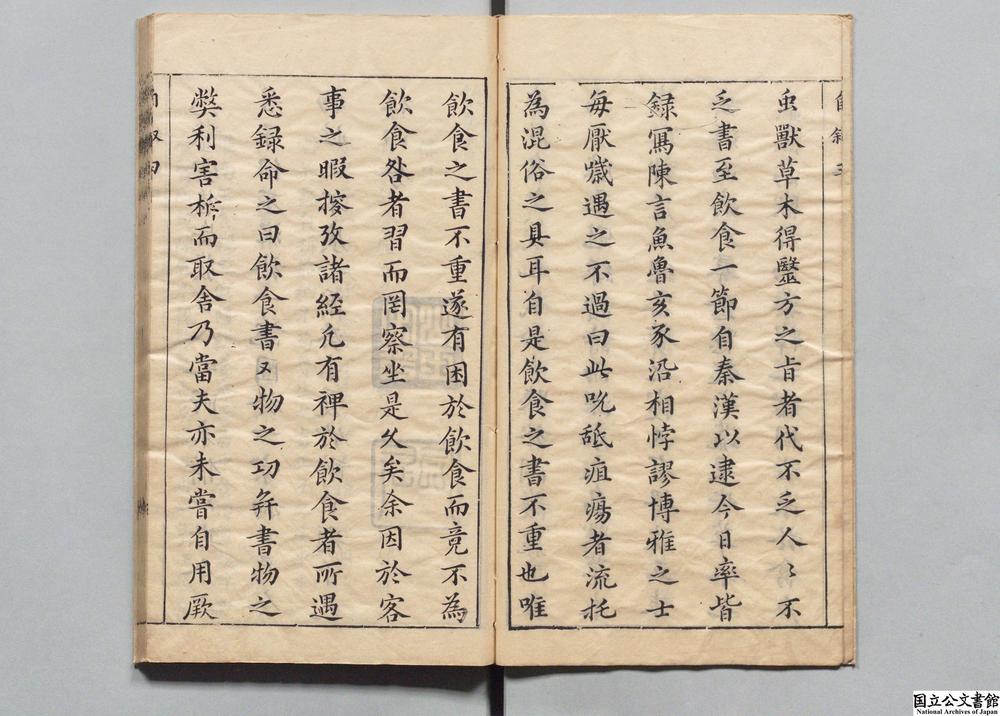 虫獸草木得毉方之旨者代不乏人〻不
乏書至飲食一節自秦漢以逮今日率皆
録寫陳言魚魯亥豕沿相悖謬博雅之士
每厭𡻕遇之不過曰此吮舐疽瘍者流托
為混俗之具耳自是飲食之書不重也唯
飲食之書不重遂有困於飲食而竟不為
飲食咎者習而罔察坐是久矣余因於客
事之暇搜攷諸經凢有裨於飲食者所遇
悉録命之曰飲食書又物之功并書物之
獘利害析而取舍乃當夫亦未嘗自用厥
国立公文書館
National Archives of Japan